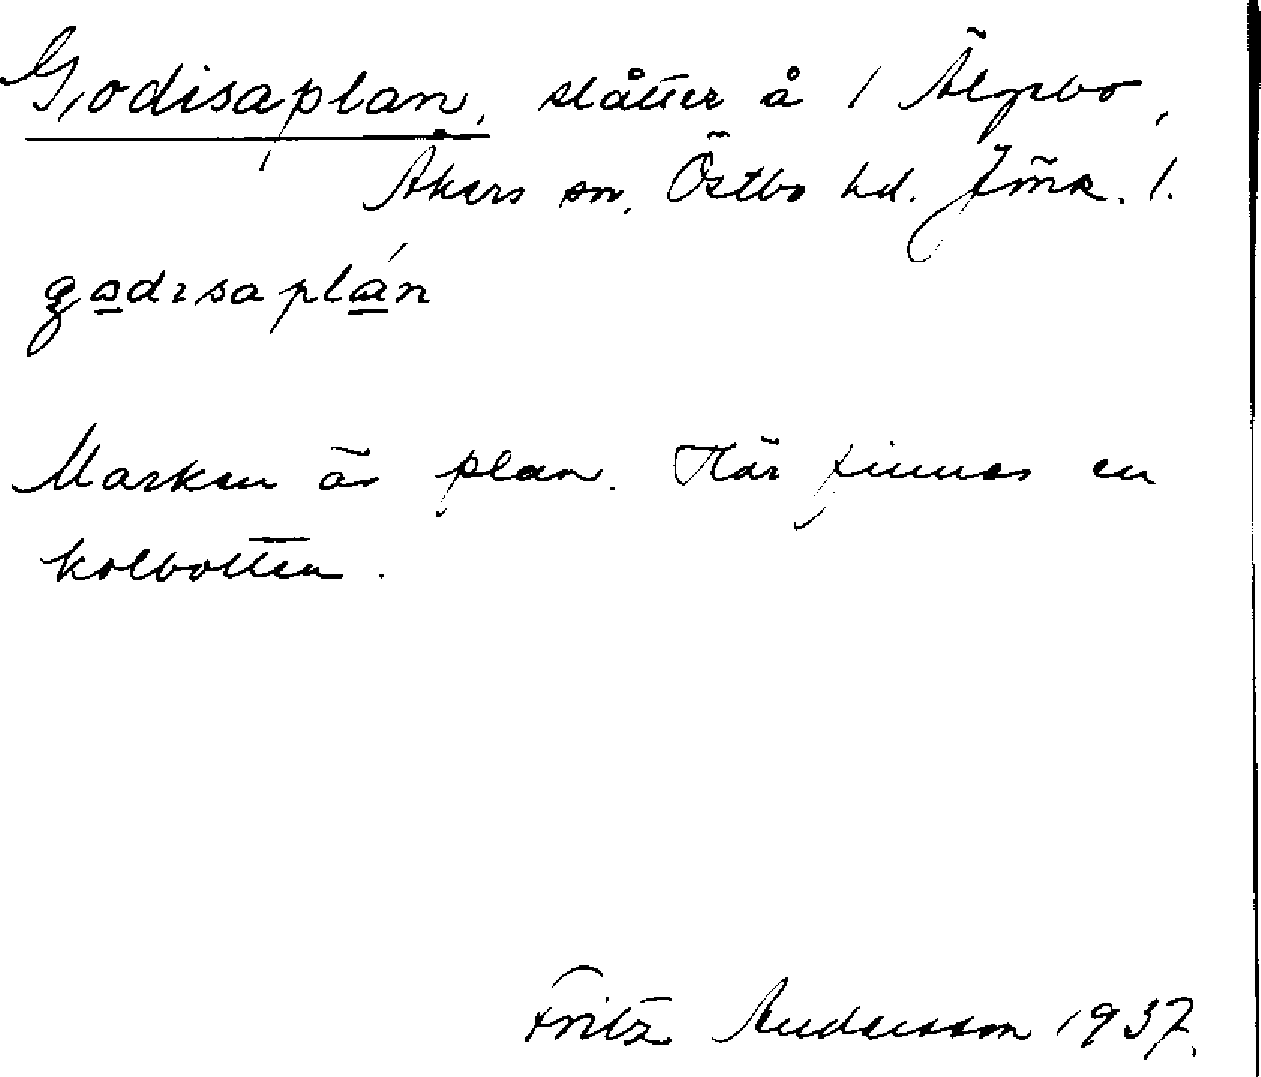 Godisaplan, slåtter å 1 Älgebo,
Åkers sn, Östbo hd. Jönk. l.
godisaplán
Marken är plan. Här finnes en
kolbotten.
Fritz Andersson 1937.